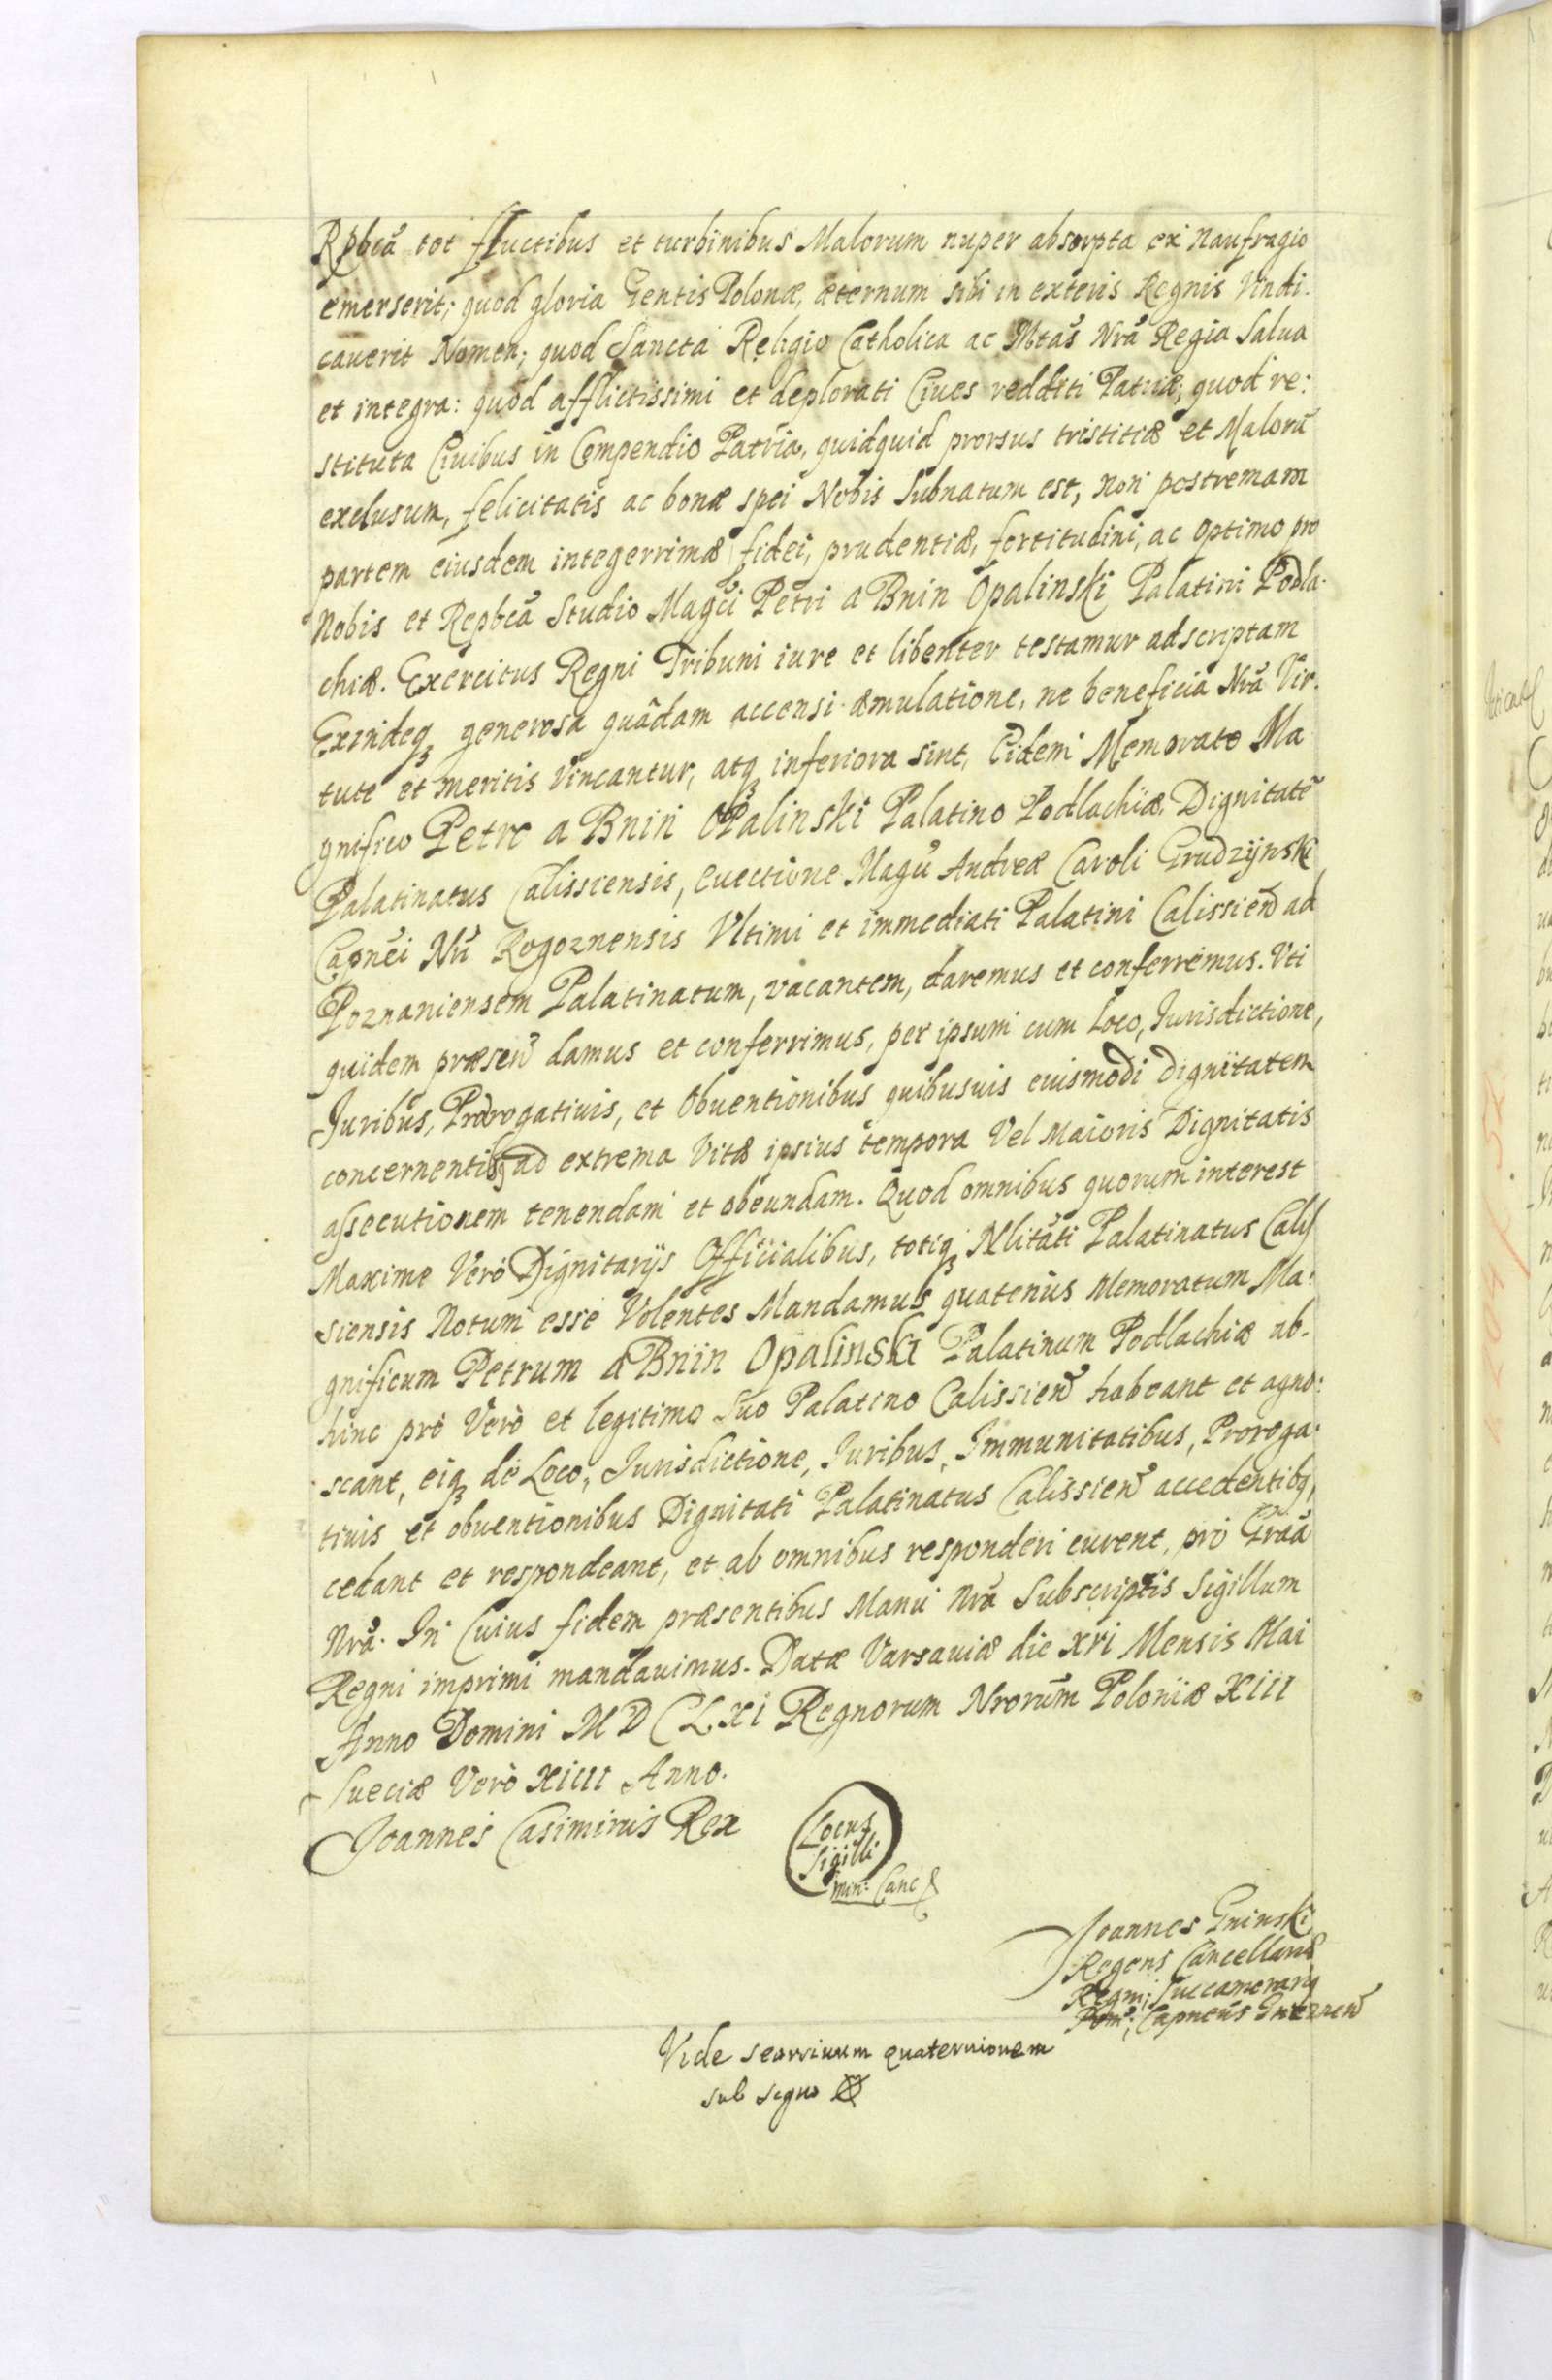 Rpbcã tot fluctibus et turbinibus Malorum nuper absorpta ex naufragio
emerserit; quod gloria Gentis Polonæ, æternum sibi in exteris Regnis Vindi-
cauerit Nomen; quod Sancta Religio Catholica ac Mtas Nrã Regia Salua
et integra: quod afflictissimi et deplorati Ciues redditi Patriæ; quod re:
stituta Ciuibus in Compendio Patria, quidquid prorsus tristitiæ et Malorũ
exclusum, felicitatis ac bonæ spei Nobis Subnatum est, non postremam
partem eiusdem integerrimæ fidei, prudentiæ, fortitudini, ac optimo pro
Nobis et Repbcã Studio Magci Petri a Bnin Opalinski Palatini Podla-
chiæ. Exercitus Regni Tribuni iure et libenter testamur adscriptam
Exindeqꝫ generosa quâdam accensi æmulatione, ne beneficia Nrã Vir-
tute et meritis vincantur, atqꝫ inferiora sint, Eidem Memorato Ma
gnifico Petro a Bnin OPalinski Palatino Podlachiæ, Dignitatẽ
Palatinatus Calissiensis, euectione Magci Andreæ Caroli Grudzijnski
Capnei Nri Rogoznensis Vltimi et immediati Palatini Calissien ad
Poznaniensem Palatinatum, vacantem, daremus et conferremus. Vti
quidem præsen damus et conferrimus, per ipsum cum Loco, Jurisdictione,
Juribus, Prærogatiuis, et Obuentionibus quibusuis eiusmodi Dignitatem
concernentibꝫ ad extrema Vitæ ipsius tempora Vel Maioris Dignitatis
assecutionem tenendam et obeundam. Quod omnibus quorum interest
Maxime Verò Dignitarijs Officialibus, totiqꝫ Nlitati Palatinatus Calis
siensis Notum esse Volentes Mandamus quatenus Memoratum Ma-
gnificum Petrum a Bnin Opalinski Palatinum Podlachiæ ab-
hinc pro Verò et legitimo Suo Palatino Calissien habeant et agno:
scant, eiqꝫ de Loco, Jurisdictione, Juribus, Immunitatibus, Proroga-
tiuis et obuentionibus Dignitati Palatinatus Calissien accedentibꝫ,
cedant et respondeant, et ab omnibus responderi curent, pro Grãa
Nrã. In Cuius fidem præsentibus Manu Nrã Subscriptis Sigillum
Regni imprimi mandauimus. Datæ Varsauiæ die XVI Mensis Mai
Anno Domini MDCLXI Regnorum Nrorum Poloniæ XIII
Sueciæ Verò XIIII Anno.
Joannes Casimirus Rex
Locus
Sigilli
min: Canc
Joannes Gninski
Regens Cancellariæ
Regni, Succamerariꝫ
Pom: Capneus Gneznen
Vide
quaternionem
sub signo